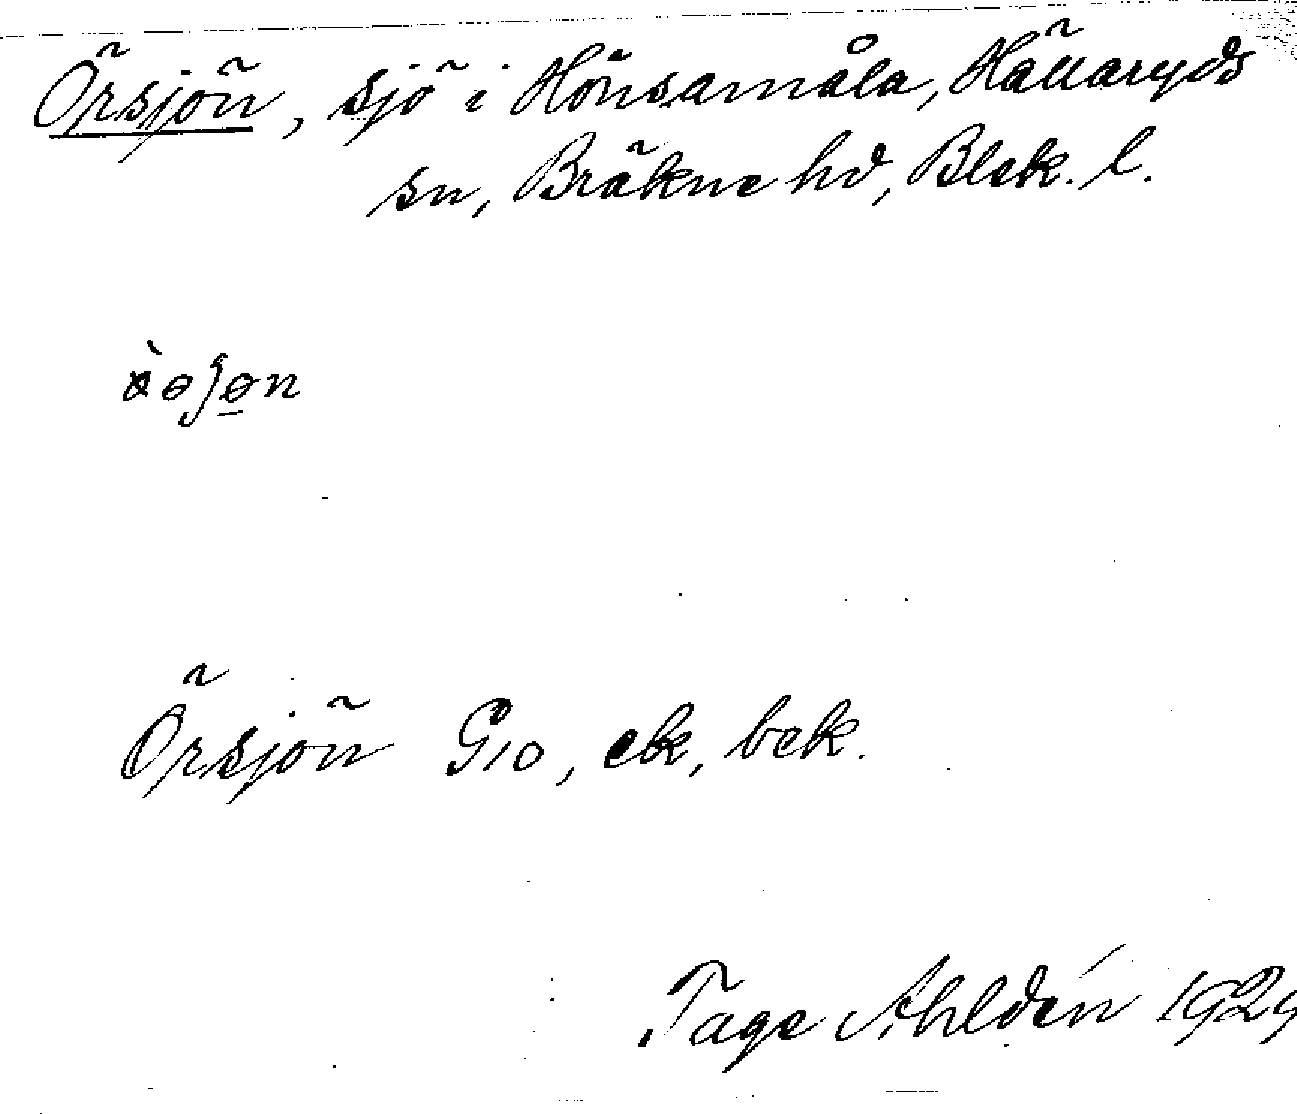 Örsjön, sjö i Hönsamåla, Hällaryds
sn, Bräkne hd, Blek. l.
Örsjön G10, ek, bek.
Tage Ahldén 192